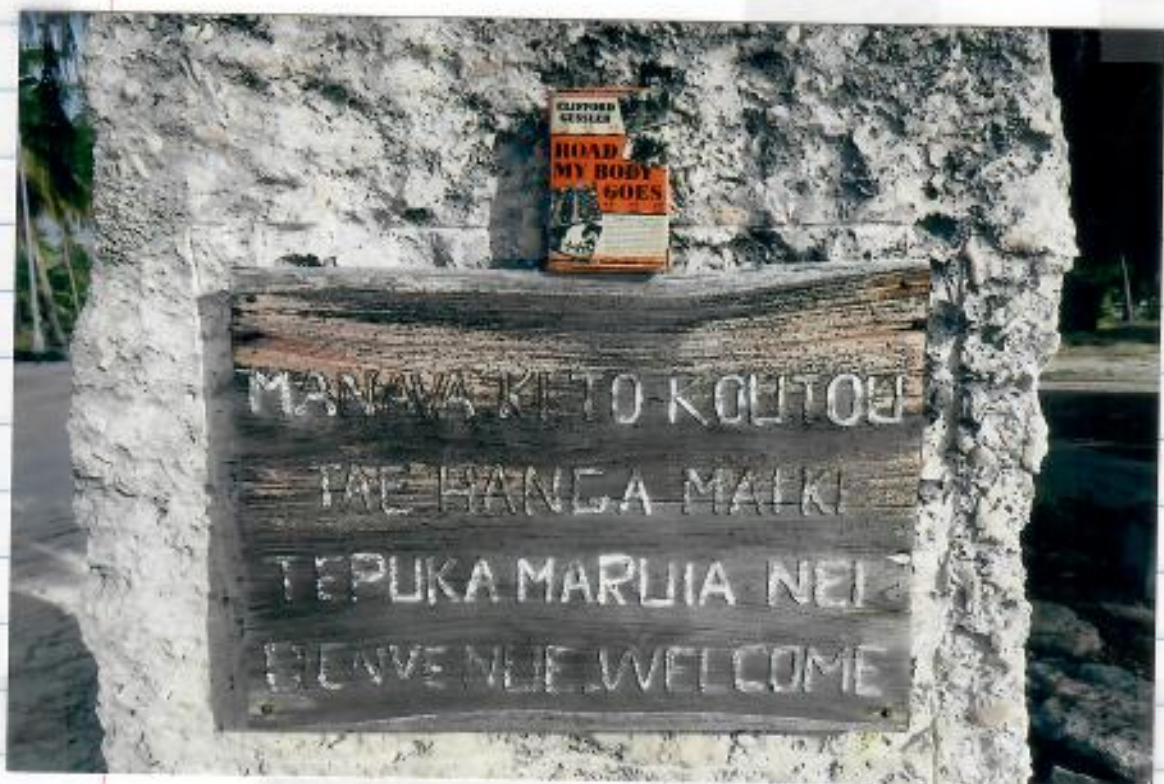 CLIFFORD
GESSLER
ROAD
MY BODY
GOES
MANAVA KI TO KOUTOU
TAE HANGA MAI KI
TEPUKA MARUIA NEI
BIENVENUE WELCOME